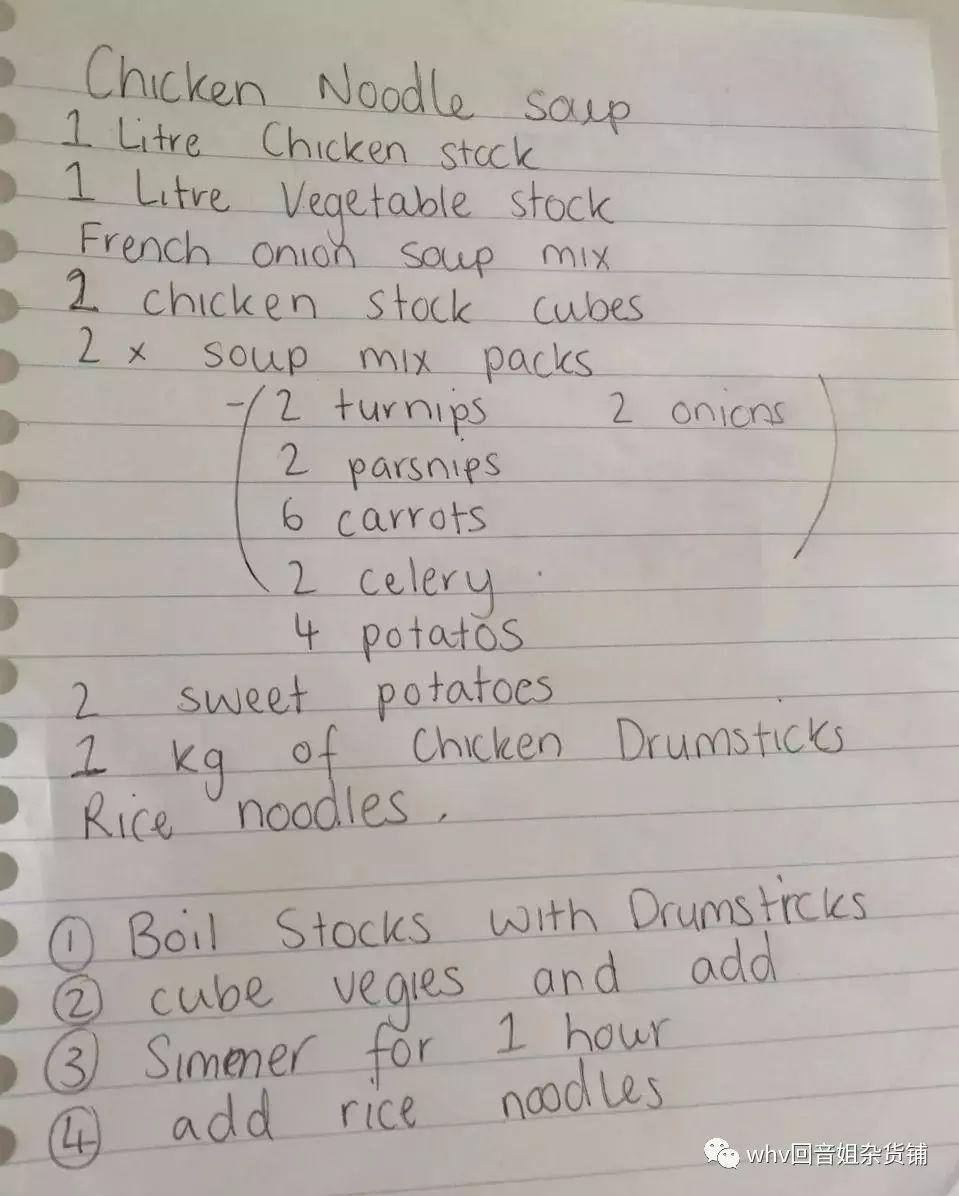 Chicken Noodle soup
1 Litre Chicken stock
1 Litre Vegetable stock
French onion soup mix
2 chicken stock cubes
2 x soup mix packs
-( 2 turnips 2 onions )
2 parsnips
6 carrots
2 celery
4 potatos
2 sweet potatoes
1 kg of Chicken Drumsticks
Rice noodles.
① Boil Stocks with Drumsticks
② cube vegies and add
③ Simmer for 1 hour
④ add rice noodles
whv回音姐杂货铺